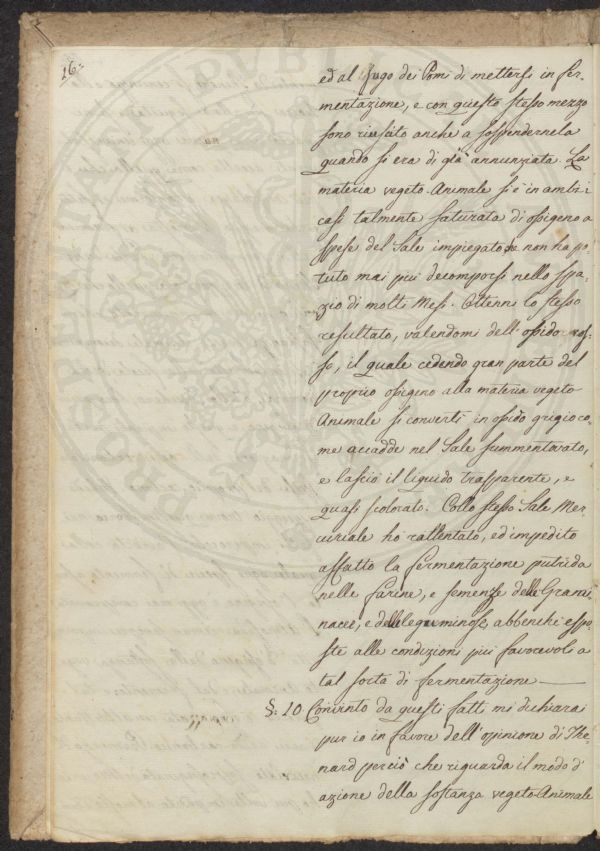 16=
ed al sugo dei Pomi di mettersi in fer-
mentazione, e con questo stesso mezzo
sono riescito anche a sospendernela
quando si era di già annunziata. La
materia vegeto-Animale si è in ambi i
casi talmente saturata di ossigeno a
spese del Sale impiegato che non ha po-
tuto mai più decomporsi nello spa-
zio di molti Mesi. Ottenni lo stesso
resultato, valendomi dell'ossido ros-
so, il quale cedendo gran parte del
proprio ossigeno alla materia vegeto
Animale si convertì in ossido grigio co-
me accadde nel Sale summentovato,
e lasciò il liquido trasparente, e
quasi scolorato. Collo stesso Sale Mer-
curiale ho rallentato, ed impedito
affatto la fermentazione putrida
nelle farine, e semenze delle Grami-
nacee, e delle leguminose, abbenchè espo-
ste alle condizioni più favorevoli a
tal sorta di fermentazione —
§: 10 Convinto da questi fatti mi dichiarai
pur io in favore dell'opinione di The-
nard perciò che riguarda il modo d'
azione della sostanza vegeto-Animale